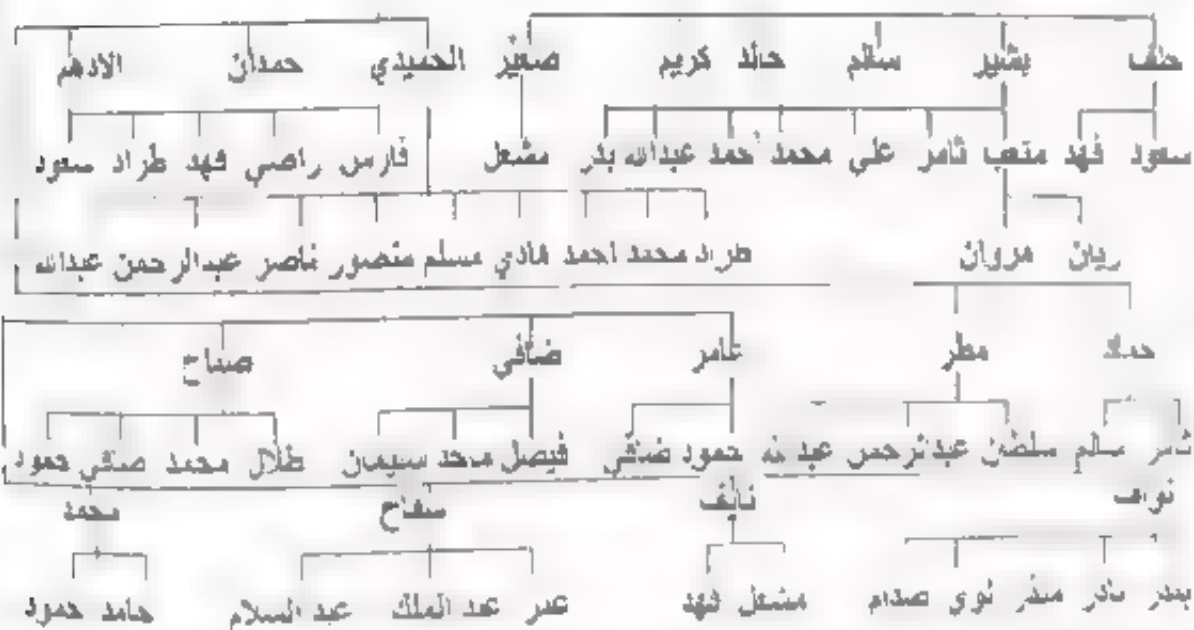 خلف بشير سالم خالد كريم صغير الحميدي حمدان الادهم
سعود فهد متعب ثامر علي محمد أحمد عبدالله بدر مشعل فارس راضي فهد طراد سعود
ريان مروان طراد محمد احمد هادي مسلم منصور ناصر عبدالرحمن عبدالله
حماد مطر عامر ضافي صباح
ثامر سالم سلطان عبدالرحمن عبدالله حمود ضافي فيصل محمد سليمان طلال محمد صافي حمود
نواف نايف سفاح محمد
بندر نادر منذر نوري صدام مشعل فهد عمر عبد الملك عبد السلام حامد حمود